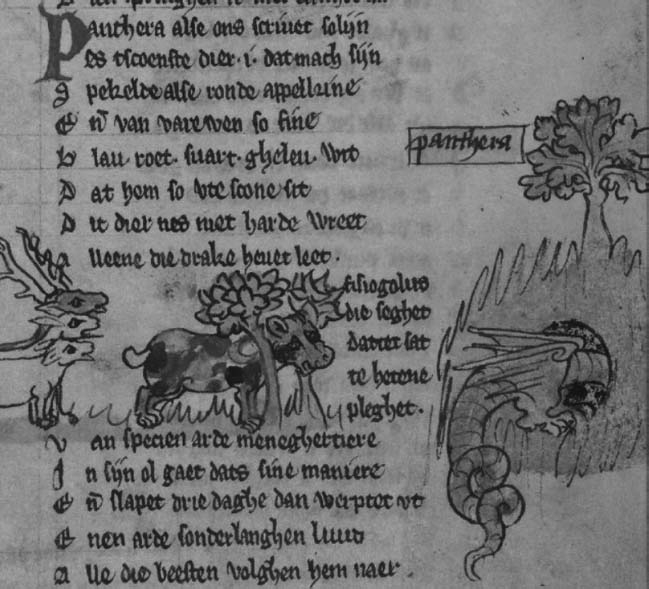 Panthera alse ons scriuet solijn
es tscoenste dier · i · dat mach sijn
g hespekelde alse ronde appelkine
E n̄ van varewen so fine
b lau · roet · suart · gheleu · wit
D at hem so vte scone sit
D it dier nes niet harde wreet
A lleene die drake heuet leet ·
fisiogolus
die seghet
dattet sat
te hetene
pleghet ·
v an specien arde meneghertiere
I n sijn ol gaet dats sine maniere
E n̄ slapet drie daghe dan werptet vt
E nen arde sonderlanghen luut
A lle die beesten volghen hem naer ·
panthera